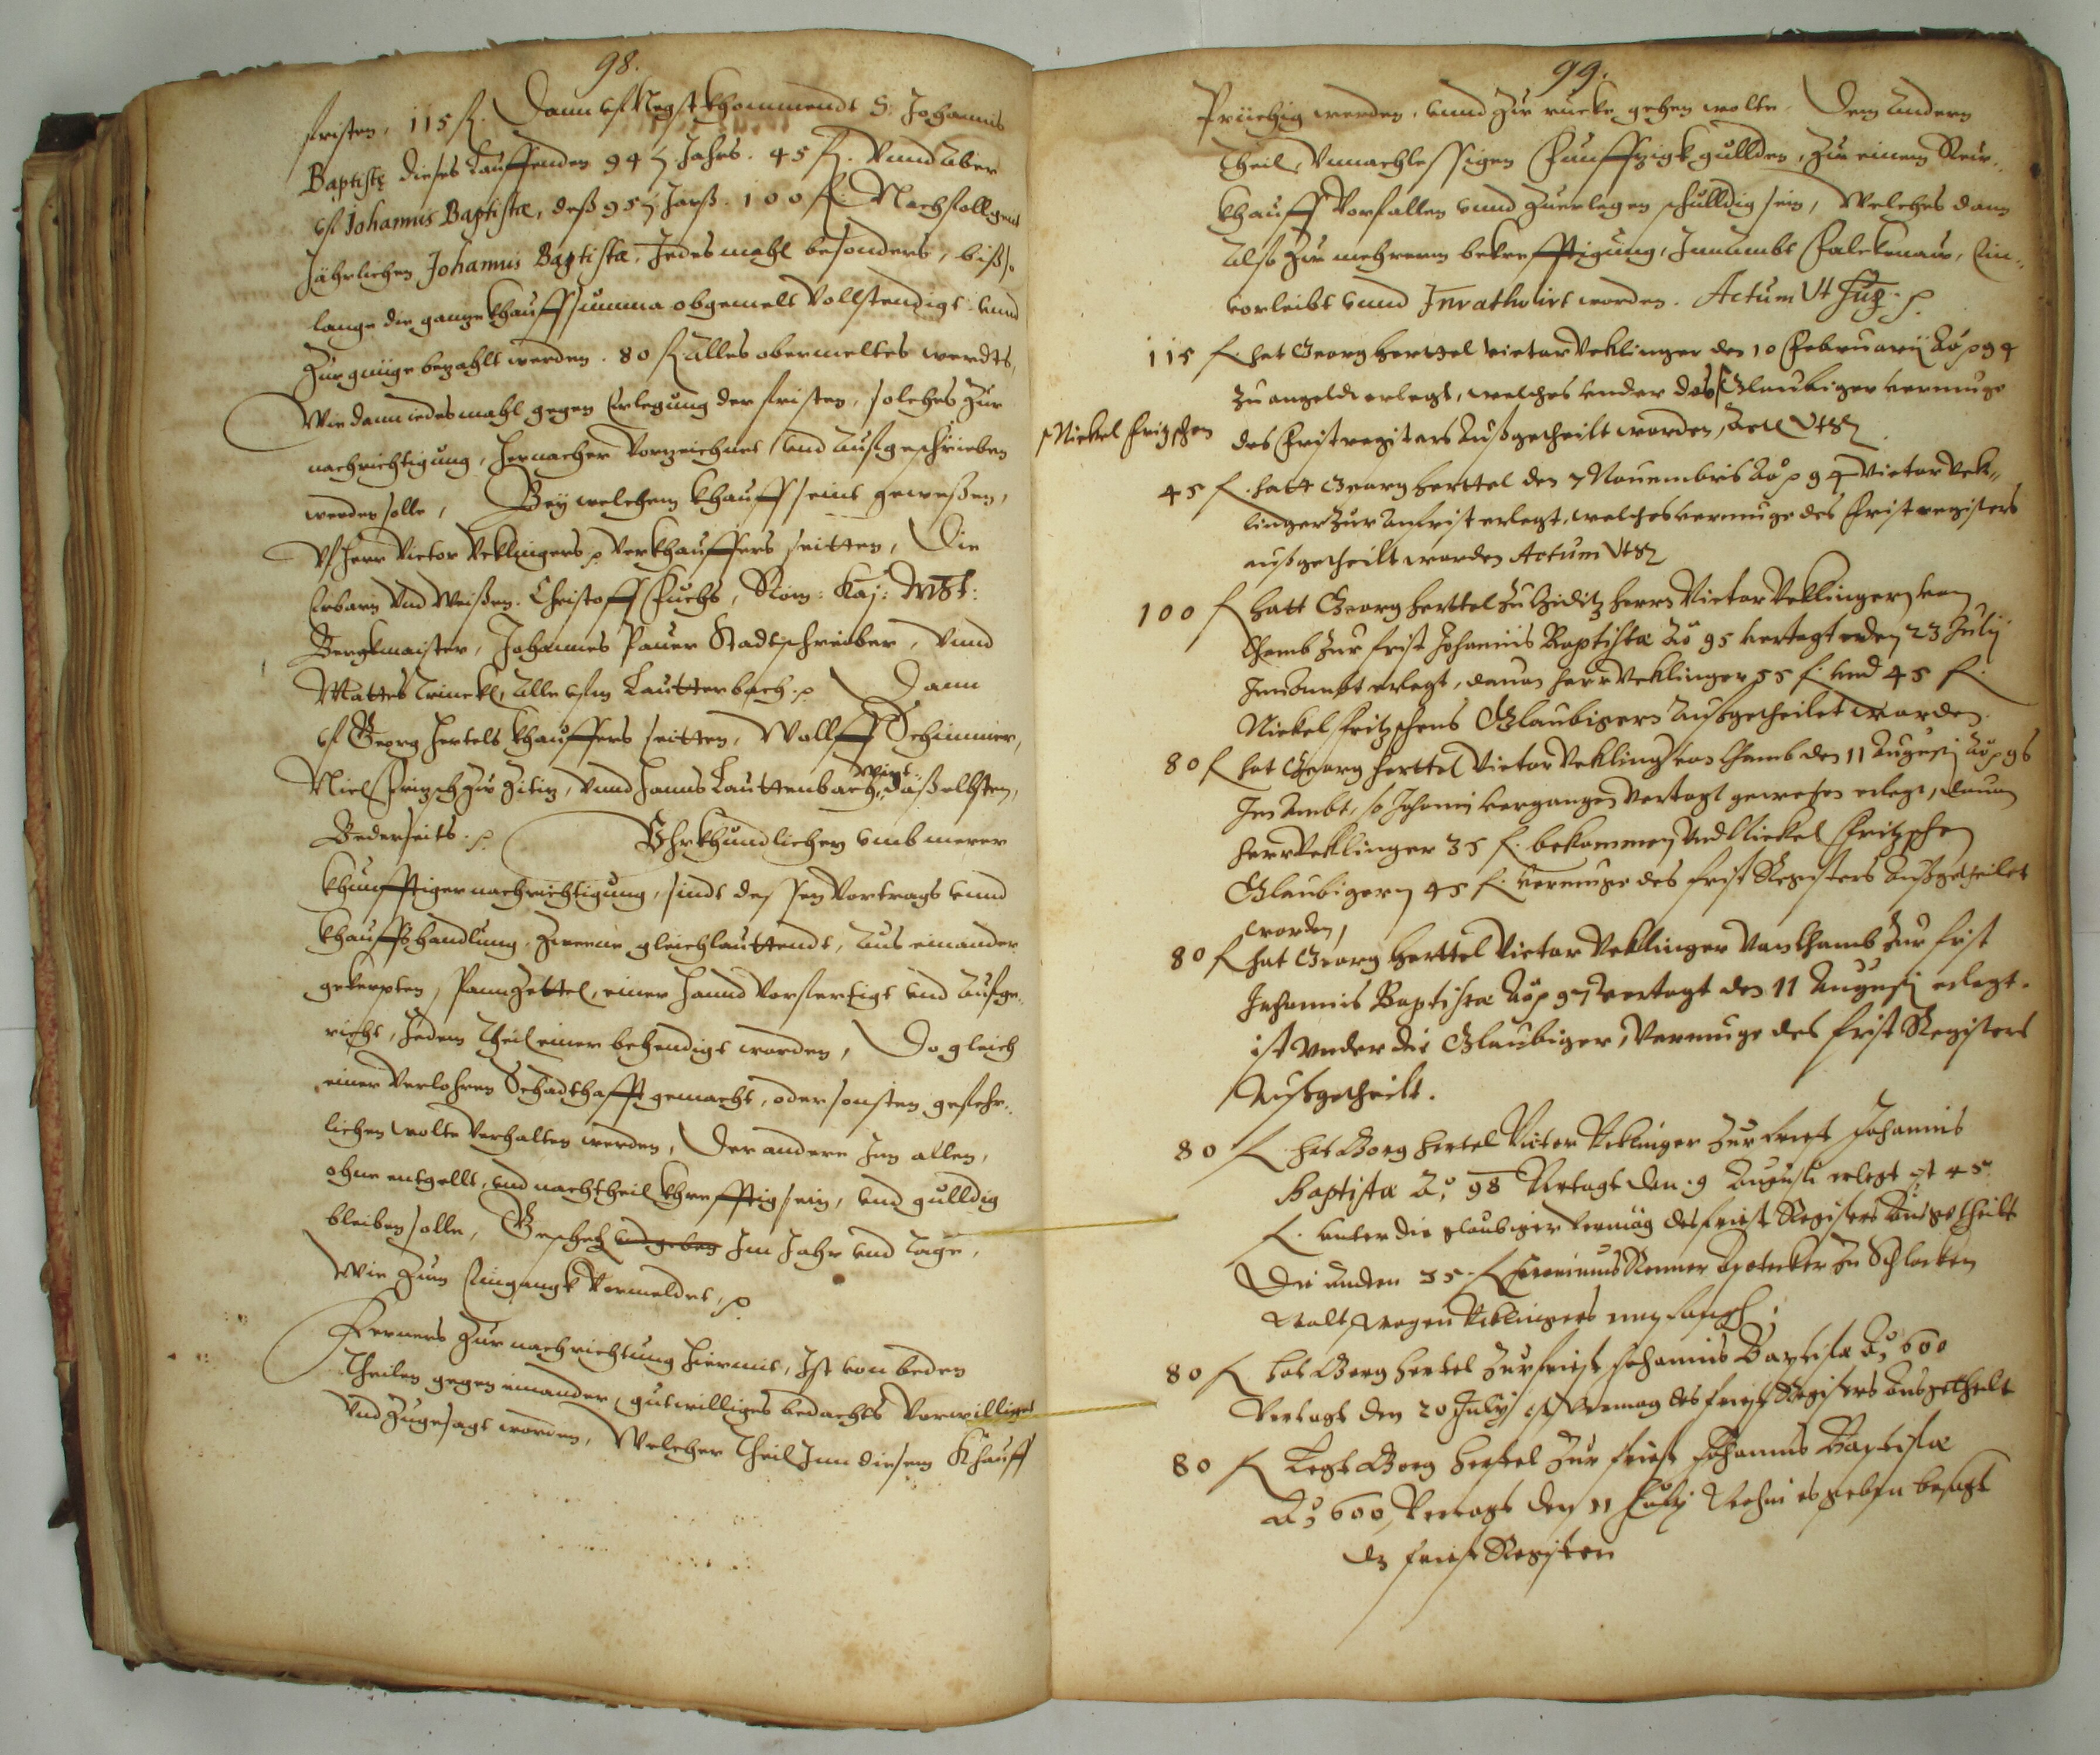 98.
fristen, 115 fl. Dann vf Negst khommendt S. Johannis
Baptistę dieses Lauffenden 94 Jahrs. 45 fl. Vnnd Aber
vf Johannis Baptistæ, deß 95 Jarß. 100 fl. Nachfollgent
Jährlichen Johannis Baptistæ, Jedesmahl besonders, biß so
lange die gantze khauffsumma obgemelt Vollstendigt vnnd
Zur gnüge bezahlt werden. 80 fl alles obermeltes werdts,
Wie dann iedesmahl gegen Erlegung der fristen, solches Zur
nachrichtigung, hernacher Vorzeichnet vnd Außgeschrieben
werden solle, Bey welchem khauff seint gewesen,
Vf Herr Victor Veklingers p Verkhauffers seitten, Die
Erbarn Vnd Weißen. Christoff Fuchs, Röm: Kaj: Mtt:
Bergkmaister, Johannes Pauer Stadtschreiber, Vnnd
Mattes Trinckl, Alle vfm Lautterbach. p Dann
vf Georg Hertels khauffers seitten, Wolff Schimmer,
Nicl Fritzsch Zu Zitiz, Vnnd Hanns Lauttenbach, daselbsten,
Bederseits. p Vhrkhundlichen vmb merer
khunfftiger nachrichtigung, sindt dessen Vortrags vnnd
khauffshandlung Zweene gleichlauttendt, Aus einander
gekerpten, Pann Zettel, einer Hannd Vorfertigt vnd Aufge„
richt, Jedem Theil einer behendigt worden, Do gleich
einer Verlohren Schadthafft gemacht, oder sonsten gefehr„
lichen wolte Verhalten werden, Der andere Inn allen,
ohne entgellt, vnd nachtheil khrefftig sein, vnd gulldig
bleiben solle, Geschehen vnd geben Im Jahr vnd Tage,
Wie Zum Eingangk Vermeldet, p
Ferners Zur nachrichtung hiermit, Ist von beden
Theilen gegen einander, gutwilliges bedachts Vorwilliget
Vnd Zugesagt worden, Welcher Theil Inn diesem Khauff
99.
Brüchig werden, vnnd Zu rucke gehen wolte, Dem Andern
Theil, Vnnachlessigen Funffzigk gullden, Zu einem Reu„
khauff Vorfallen vnnd Zuerlegen schulldig sein, Welches dann
Alß Zu mehrerm bekrefftigung, Inn Ambt Falckenaw, Ein„
vorleibt vnnd worden. Actum Vt p.
115 fl. hat Georg Herttel Victor Veklinger den 10 Februarij Aō p 94
Zu angeldt erlegt, welches vnder des Glaubiger vermuge
Nickel Fritzschen
des Fristregisters Außgetheilt worden,
45 fl. hatt Georg Herttel den 7 Nouembris Aō p 94 Victor Vek„
linger Zur Anfrist erlegt, welches vermuge des Fristregisters
außgetheilt worden Actum
100 fl hatt Georg Herttel Zu Herrn Victor Veklingern von
Chamb Zur frist Johannis Baptistæ Aō 95 vertagt den 23 Julij
Im Ambt erlegt, dauon Herr Veklinger 55 fl. vnd 45 fl.
Nickel Fritzschens Glaubigern Außgetheilet worden.
80 fl hat Georg Herttel Victor Vekling von Chamb den 11 Augusti Aō p 96
Im Ambt, so Johanni vergangen Vertagt gewesen erlegt, dauon
Herr Veklinger 35 fl. bekommen Vnd Nickel Fritzschen
Glaubigern 45 fl. vermuge des frist Registers Außgetheilet
worden,
80 fl hat Georg Herttel Victor Veklinger Von Chamb Zur frist
Johannis Baptistæ Aō p 97 vertagt den 11 Augusti erlegt.
ist Vnder die Glaubiger, Vermuge des frist Registers
Außgetheilt.
80 fl hat Georg Hertel Victor Veklinger Zur frist Johannis
Baptistæ Aō. 98 Vertagt den 9 Augusti erlegt ist 45
fl. vnter die glaubiger vermög des frist Registers Ausgetheilt
Die Andern 35 fl Renner Apotecker Zu Schlacken
waldt wegen Veklingers empfangen,
80 fl hat Georg Hertel Zur frist Johannis Baptistæ Aō 600
Vertagt den 20 July ist Vermög des frist Registers Ausgetheilt
80 fl Legt Georg Hertel Zur frist Johannis Baptistæ
Aō 600, Vertagt den 11 July Wohin es geben besagt
das frist Register